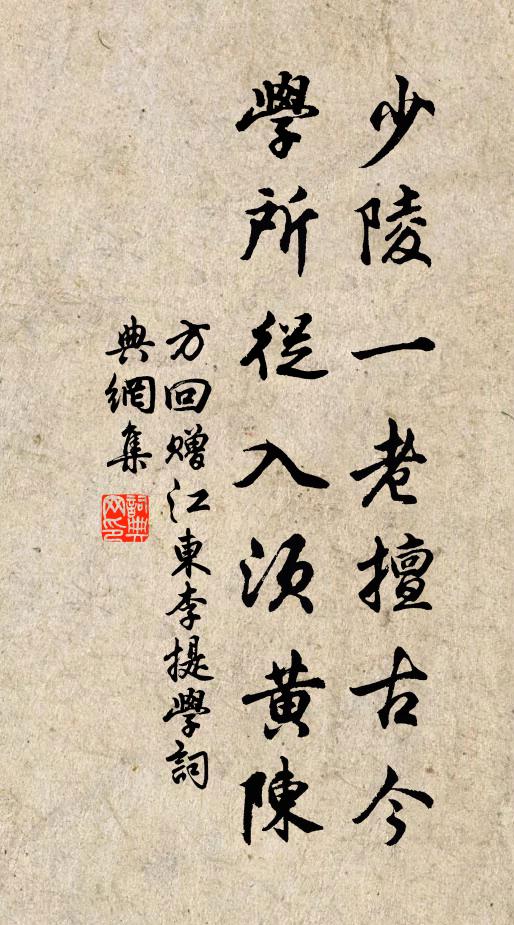 少陵一老擅古今
學所從入須黄陳
方回赠江東李提學詞
典網集
詞典网印